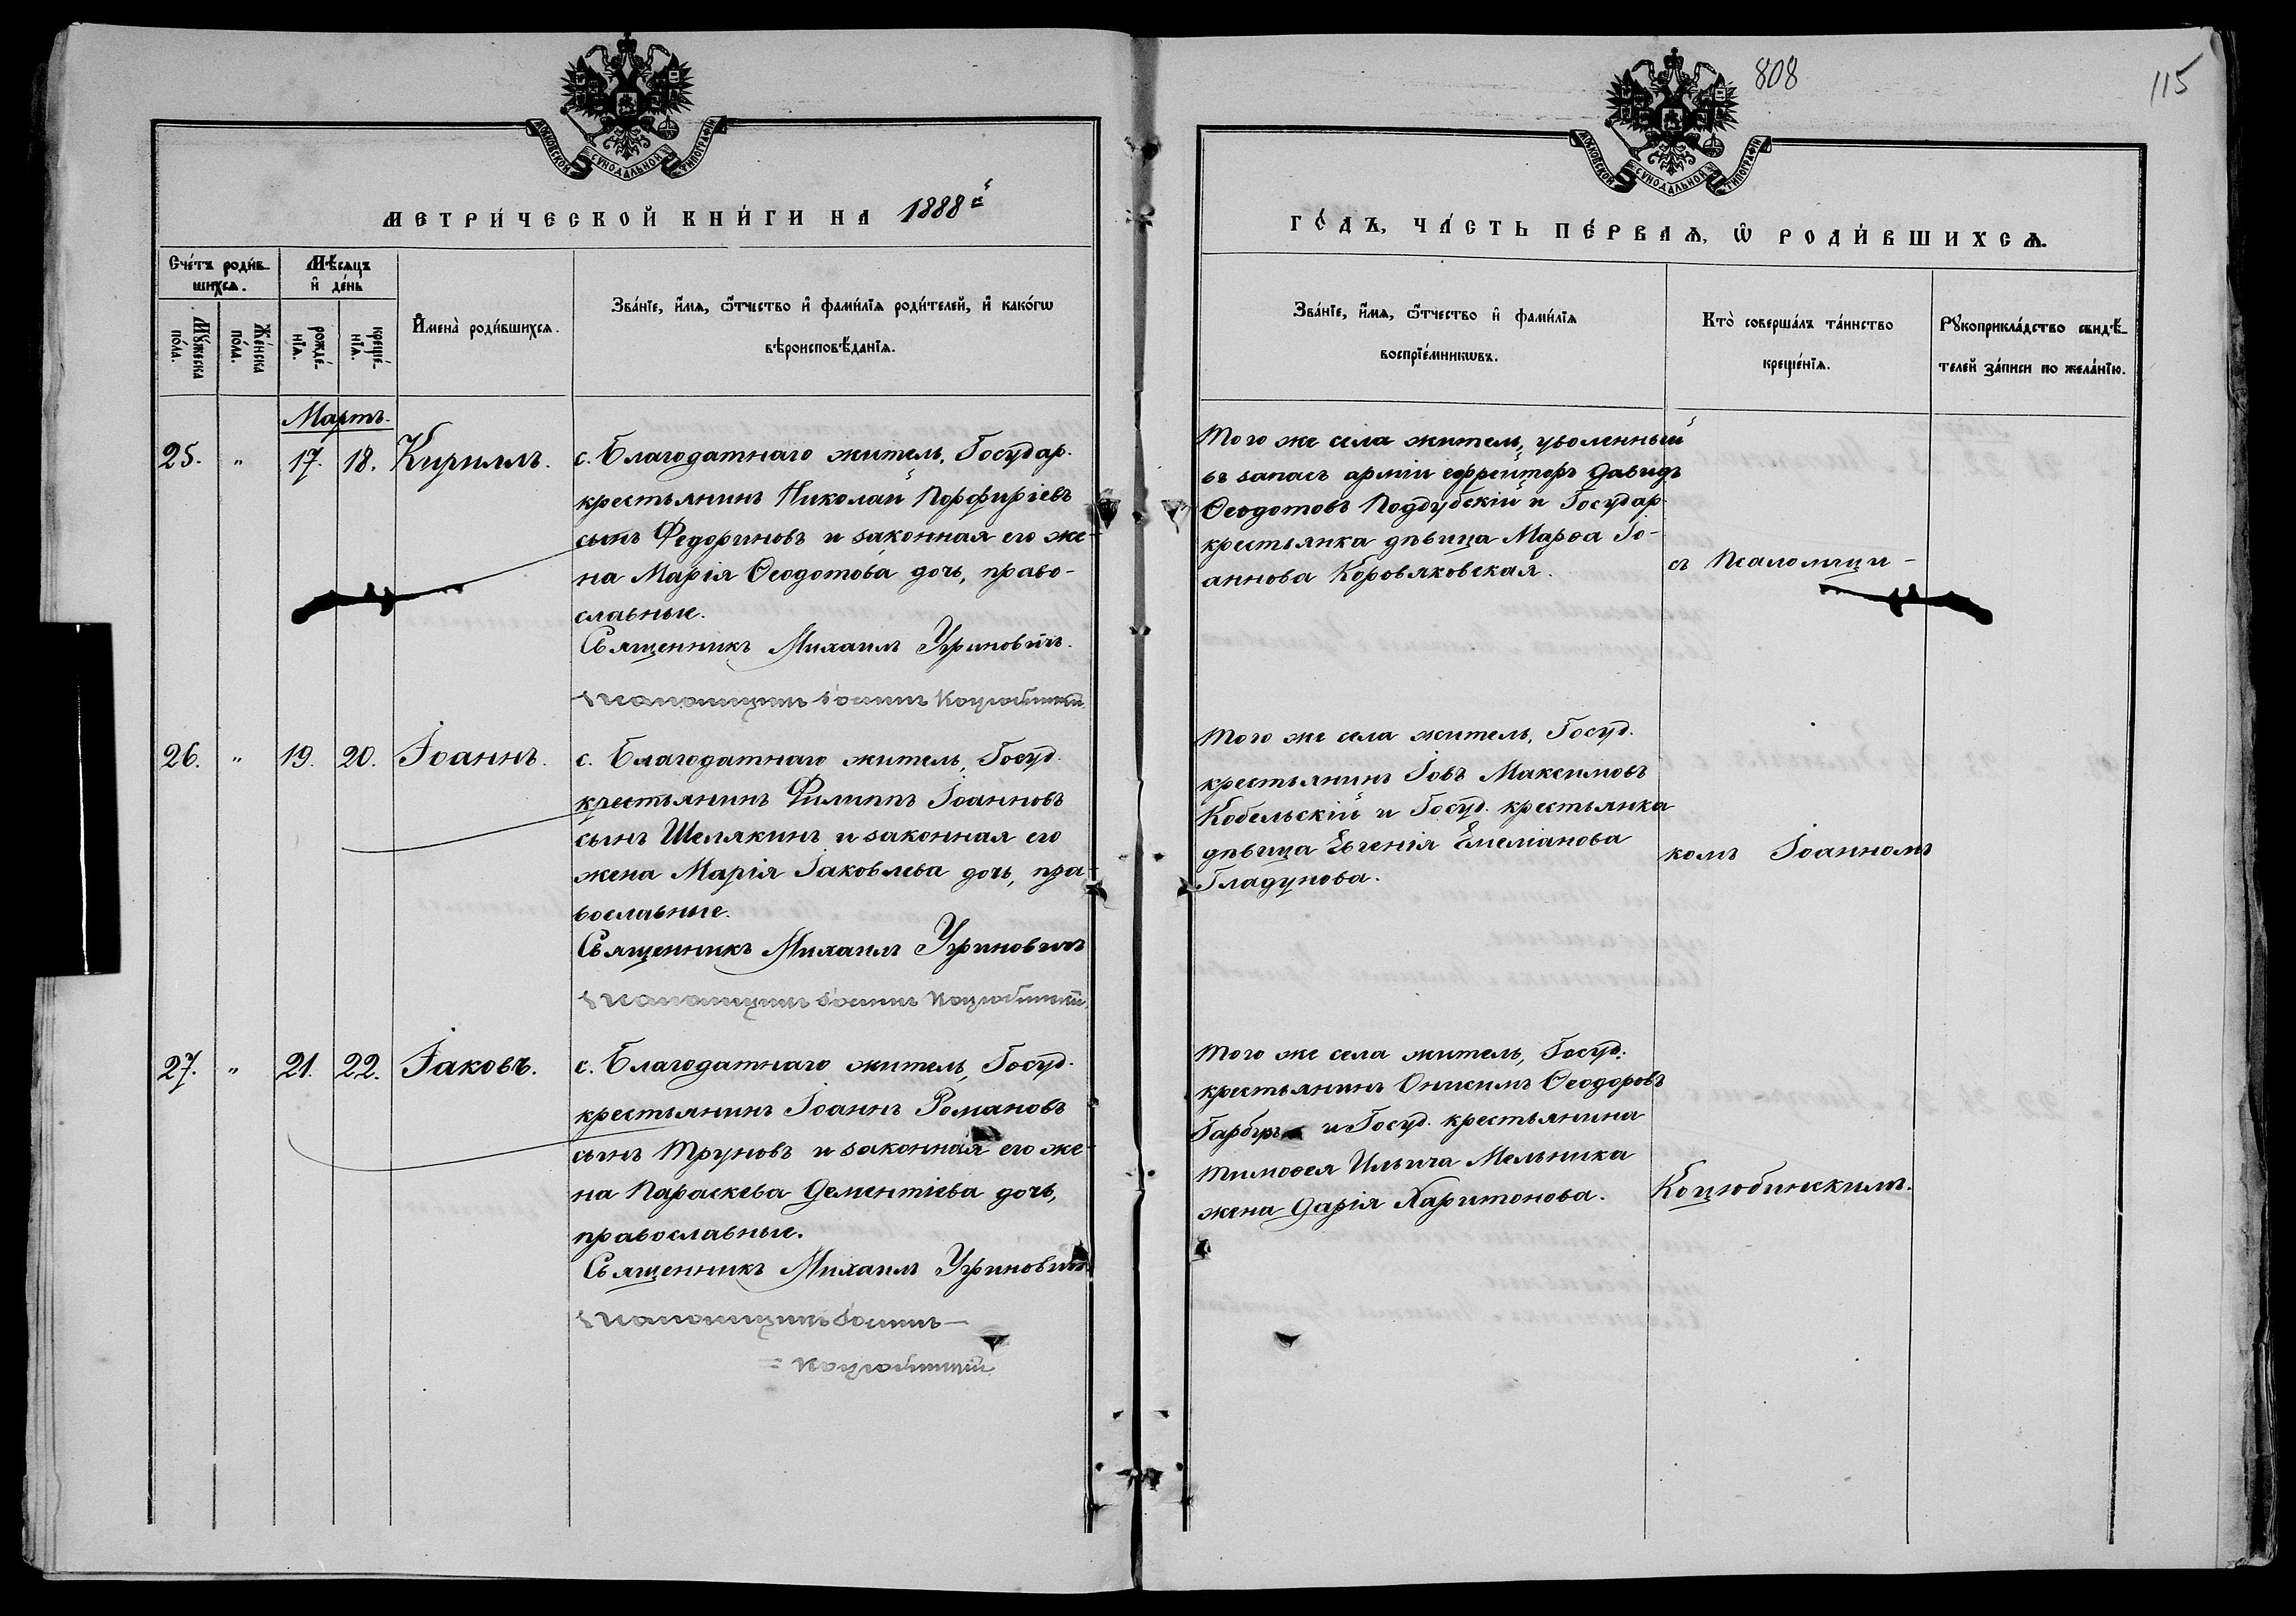 808
115
МОСКОВСКОЙ СѴНОДАЛЬНОЙ ТИПОГРАФІИ
МОСКОВСКОЙ СѴНОДАЛЬНОЙ ТИПОГРАФІИ
МЕТРИ́ЧЕСКОЙ КНИ́ГИ НА 1888й
ГО́ДЪ, ЧА́СТЬ ПЕ́РВАѦ, Ѡ҆ РОДИ́ВШИХСѦ.
Сче́тъ роди́в-
шихсѧ.
Мѣ́сѧцъ
и҆ де́нь
Мꙋ́жеска
по́ла.
Же́нска
по́ла.
рожде́-
нїѧ.
креще́-
нїѧ.
И҆мена̀ роди́вшихсѧ.
Зва́нїе, и҆́мѧ, ѻ҆́тчество и҆ фами́лїѧ роди́телей, и҆ како́гѡ
вѣроисповѣ́данїѧ.
Зва́нїе, и҆́мѧ, ѻ҆́тчество и҆ фами́лїѧ
воспрїе́мникѡвъ.
Кто̀ соверша́лъ та́инство
креще́нїѧ.
Рꙋкоприкла́дство свидѣ́-
телей за́писи по жела́нїю.
Мартъ.
25. " 17. 18. Кириллъ.
с. Благодатнаго житель, Государ.
крестьянинъ Николай Порфиріевъ
сынъ Федориновъ и законная его же-
на Марія Ѳеодотова дочь, право-
славные.
Священникъ Михаилъ Угриновичъ.
Псаломщикъ Іоаннъ Коцюбинскій.
Того же села житель, уволенный
въ запасъ арміи ефрейторъ Давидъ
Ѳеодотовъ Поддубскій и Государ.
крестьянка дѣвица Марѳа Іо-
аннова Коровяковская.
съ Псаломщи-
26. " 19. 20. Іоаннъ.
с. Благодатнаго житель, Госуд.
крестьянинъ Филиппъ Іоанновъ
сынъ Шелякинъ и законная его
жена Марія Іаковлева дочь, пра-
вославные.
Священникъ Михаилъ Угриновичъ
Псаломщикъ Іоаннъ Коцюбинскій.
Того же села житель, Госуд.
крестьянинъ Іовъ Максимовъ
Кобельскій и Госуд. крестьянка
дѣвица Евгенія Емеліанова
Гладунова.
комъ Іоанномъ
27. " 21. 22. Іаковъ.
с. Благодатнаго житель, Госуд.
крестьянинъ Іоаннъ Романовъ
сынъ Труновъ и законная его же-
на Параскева Дементіева дочь,
православные.
Священникъ Михаилъ Угриновичъ.
Псаломщикъ Іоаннъ-
= Коцюбинскій.
Того же села житель, Госуд.
крестьянинъ Онисимъ Ѳеодоровъ
Гарбузъ и Госуд. крестьянина
Тимоѳея Ильича Мельника
жена Дарія Харитонова.
Коцюбинскимъ.